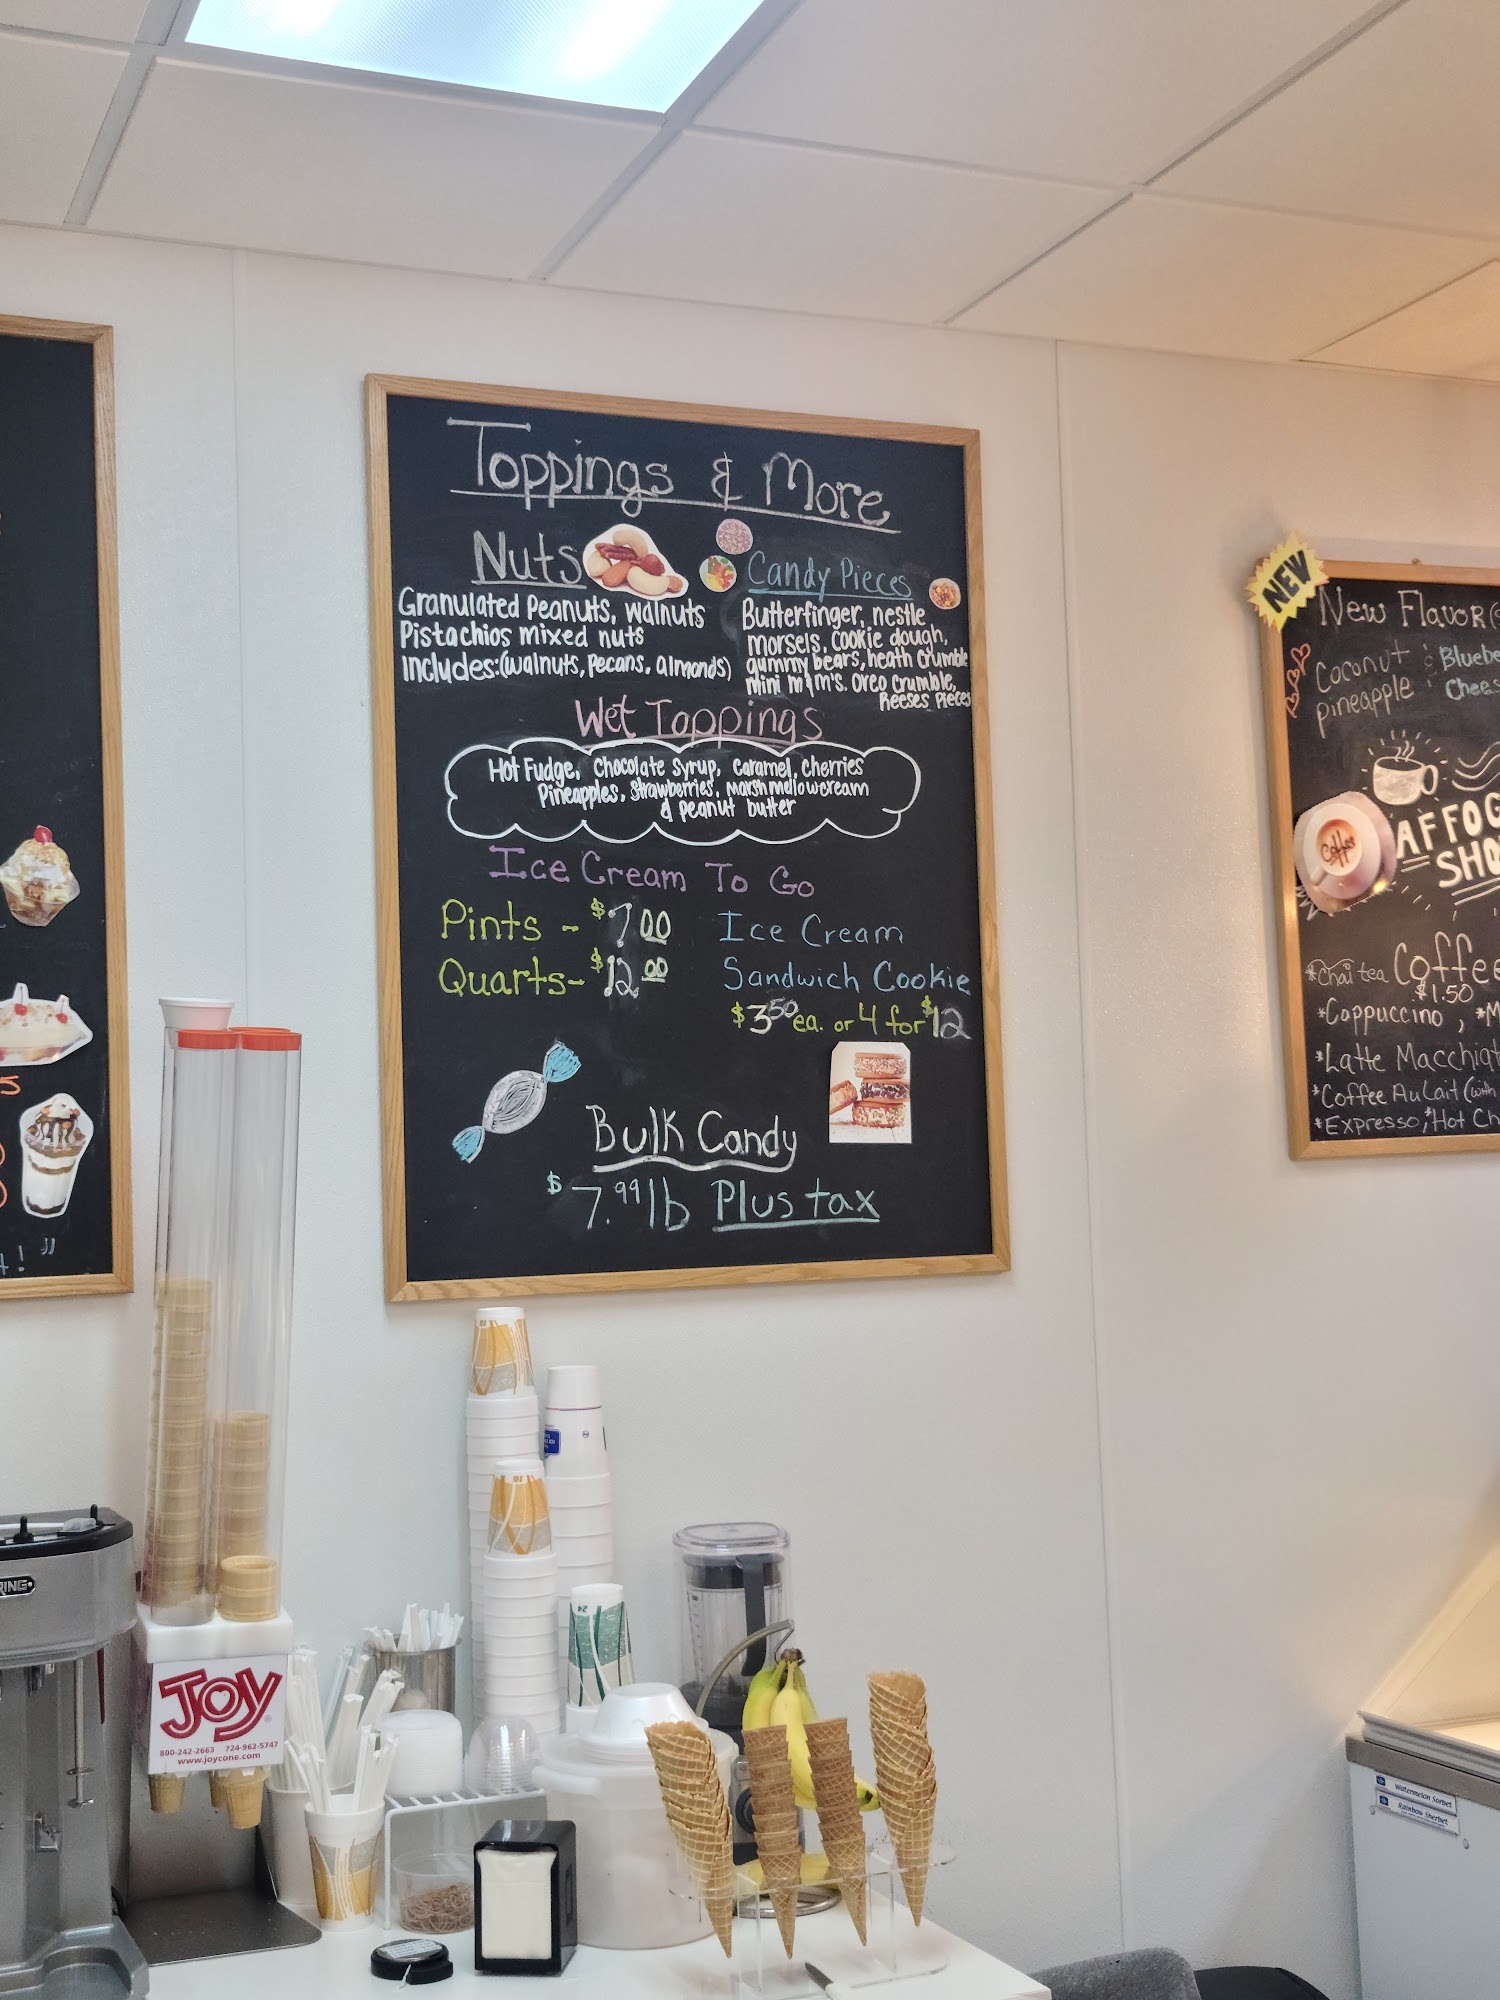 Toppings & More
Nuts
Granulated Peanuts, walnuts
Pistachios mixed nuts
Includes:(walnuts, pecans, almonds)
Candy Pieces
Butterfinger, nestle
morsels, cookie dough,
gummy bears, heath crumble
mini m&m's. oreo crumble,
Reeses Pieces
Wet Toppings
Hot Fudge, Chocolate Syrup, caramel, cherries
Pineapples, Strawberries, Marshmellowcream
& peanut butter
Ice Cream To Go
Pints - $7.00
Quarts- $12.00
Ice Cream
Sandwich Cookie
$3.50 ea. or 4 for $12
Bulk Candy
$7.99 lb Plus tax
NEW
New Flavor(s
Coconut
pineapple
&
Bluebe
Chees
Coffee
AFFOG
SHO
*Chai tea Coffee
$1.50
*Cappuccino, *M
*Latte Macchiat
*Coffee Au Lait (with
*Expresso, *Hot Ch
5
!"
RING
JOY
800-242-2663 724-962-5747
www.joycone.com
16
24
Watermelon Sorbet
Rainbow Sherbet